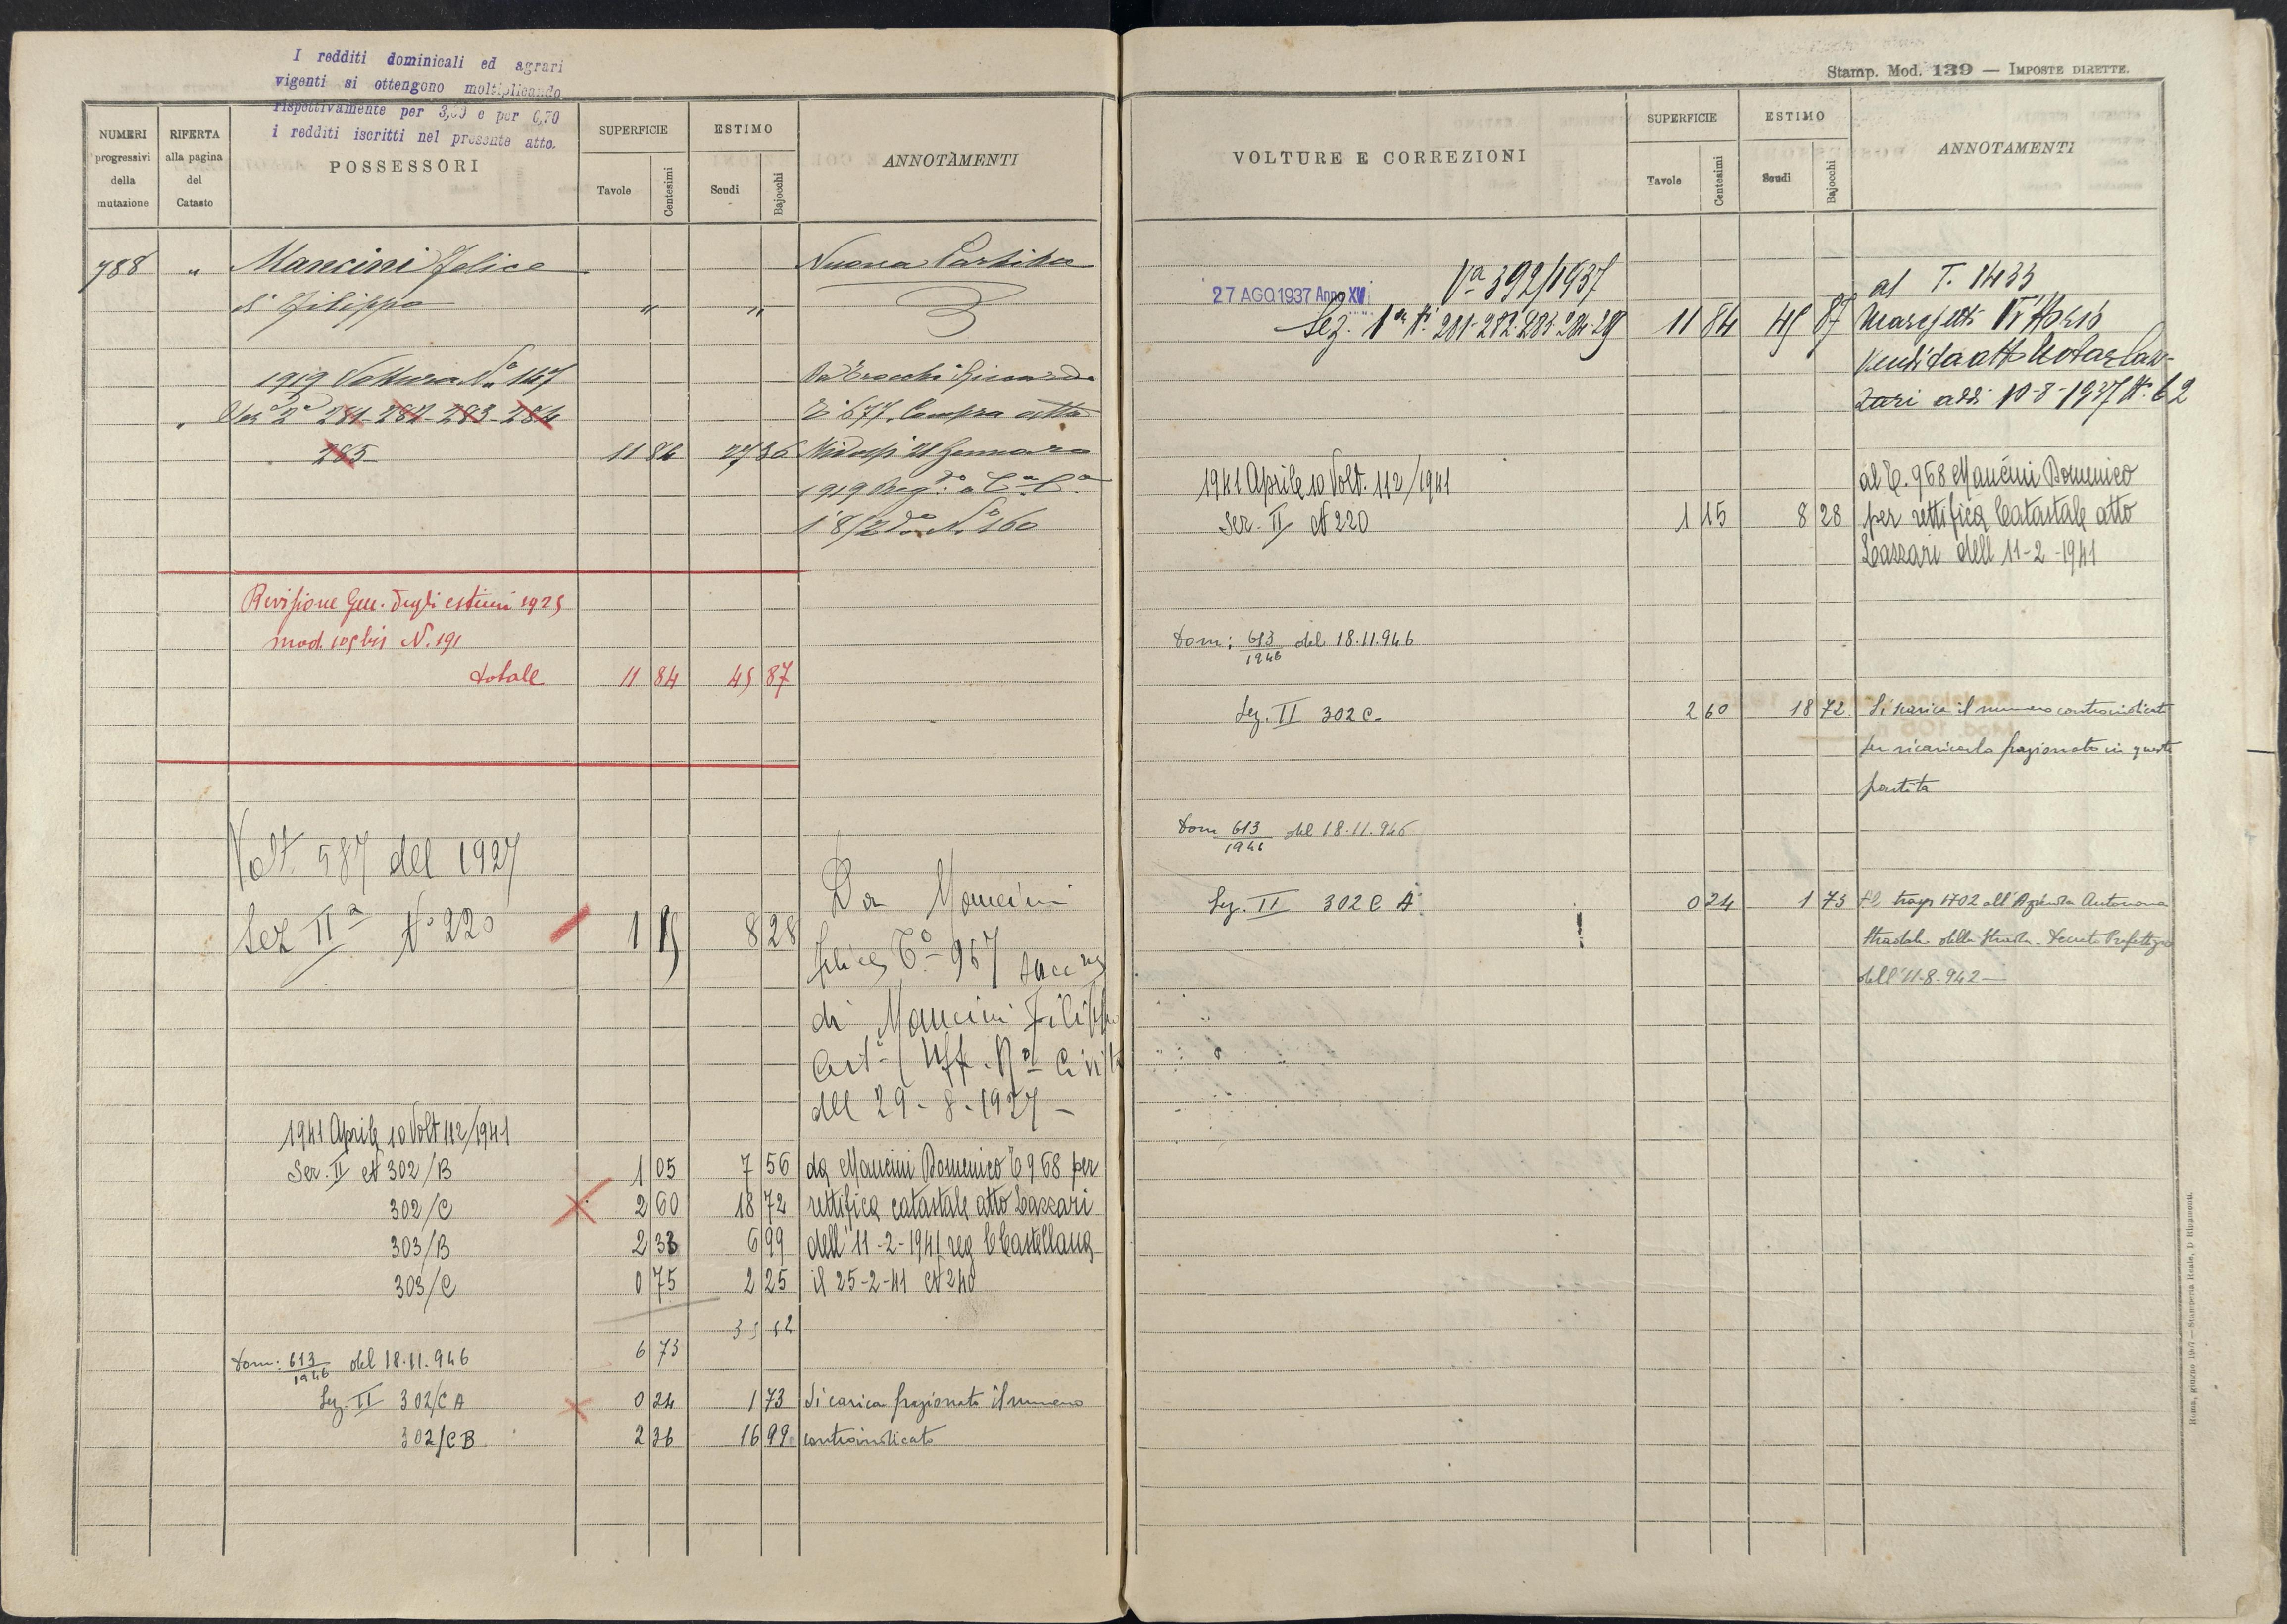 I redditi dominicali ed agrari
vigenti si ottengono moltiplicando
rispettivamente per 3,50 e per 6,70
i redditi iscritti nel presente atto.
NUMERI progressivi della mutazione
RIFERTA alla pagina del Catasto
POSSESSORI
SUPERFICIE
Tavole Centesimi
ESTIMO
Scudi Bajocchi
ANNOTAMENTI
788 " Mancini Felice Nuova Partita
di Filippo " "
1919 Voltura No 147
281-282-283-284
285 11 84 27 36
Da Riccardo
677 Compra atto
Gennaro
1919 Reg.
No 160
Revisione Gen. degli estimi 1925
mod. 105 bis N. 191
totale 11 84 45 87
Volt. 587 del 1927
Sez IIa No 220 1 15 8 28
Da Mancini
Felice To 967 succ
di Mancini Filippo
dell 29-8-1927 -
1941 Aprile 10 Volt 112/1941
Sez. II N 302/B 1 05 7 56 da Mancini Domenico T 968 per
302/C 2 60 18 72 rettifica catastale atto Lazzari
303/B 2 33 6 99 dell' 11-2-1941 reg C Castellana
303/C 0 75 2 25 il 25-2-41 N 240
35 52
6 73
Dom: 613/1946 del 18.11.946
Sez. II 302/C A 0 24 1 73 Si carica frazionato il numero
302/C B 2 36 16 99 controindicato
Stamp. Mod. 139 — IMPOSTE DIRETTE.
VOLTURE E CORREZIONI
SUPERFICIE
Tavole Centesimi
ESTIMO
Scudi Bajocchi
ANNOTAMENTI
27 AGO 1937 Anno XV Va 392/1937
Sez. 1a N. 281-282-283-284-285 11 84 45 87
al T. 1433
Vendita atto Notar Laz-
zari addì 10-8-1937 N. 62
1941 Aprile 10 Volt. 112/1941
Sez. II N 220 1 15 8 28
al T. 968 Mancini Domenico
per rettifica Catastale atto
Lazzari dell 11-2-1941
Dom: 613/1946 del 18.11.946
Sez. II 302 C. 2 60 18 72 Si scarica il numero controindicato
per ricaricarlo frazionato in questa
partita
Dom 613/1946 del 18.11.946
Sez. II 302 C A 0 24 1 73 1702 all'Azienda Autonoma
Stradale della Strada. Decreto Prefettizio
dell'11-8-942 —
Roma, giugno 1907 — Stamperia Reale, D Ripamonti.